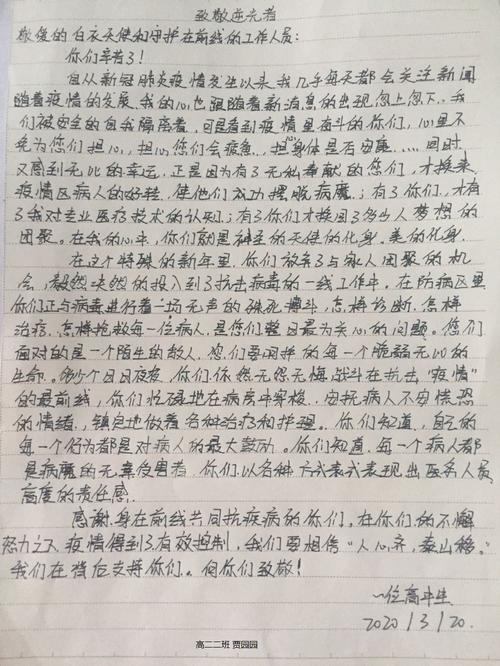 致敬逆光者
敬佩的白衣天使和守护在前线的工作人员:
你们辛苦了!
自从新冠肺炎疫情发生以来,我几乎每天都会关注新闻
随着疫情的发展,我的心也跟随着新消息的出现忽上忽下。我
们被安全的自我隔离着,可是看到疫情里奋斗的你们,心里不
免为您们担心,担心您们会疲惫,担身体是否安康....同时
又感到无比的幸运,正是因为有了无私奉献的您们,才换来
疫情区病人的好转,使他们成功摆脱病魔;有了你们,才有
了我对专业医疗技术的认知;有了你们才换回了多少人梦想的
团聚。在我的心中,你们就是神圣的天使的化身,美的化身,
在这个特殊的新年里,你们放弃了与家人团聚的机
会,毅然决然的投入到了抗击病毒的一线工作中,在防病区里
你们正与病毒进行着一场无声的殊死搏斗,怎样诊断,怎样
治疗,怎样抢救每一位病人,是您们整日最为关心的问题。您们
面对的是一个陌生的敌人,您们要呵护的每一个脆弱无比的
生命。多少个日日夜夜,你们依然无怨无悔战斗在抗击"疫情"
的最前线,你们忙碌地在病房中穿梭,安抚病人不安恐惧
的情绪,镇定地做着各种治疗和护理。你们知道,自己的
每一个行为都是对病人的最大鼓励。你们知道,每一个病人都
是病魔的无辜受害者,你们以各种方式表式表现出医务人员
高度的责任感。
感谢身在前线共同抗疾病的你们,在你们的不懈
努力之下,疫情得到了有效控制,我们要相信"人心齐,泰山移。"
我们在背后支持你们。向你们致敬!
一位高中生
2020/3/20.
高二二班 贾园园